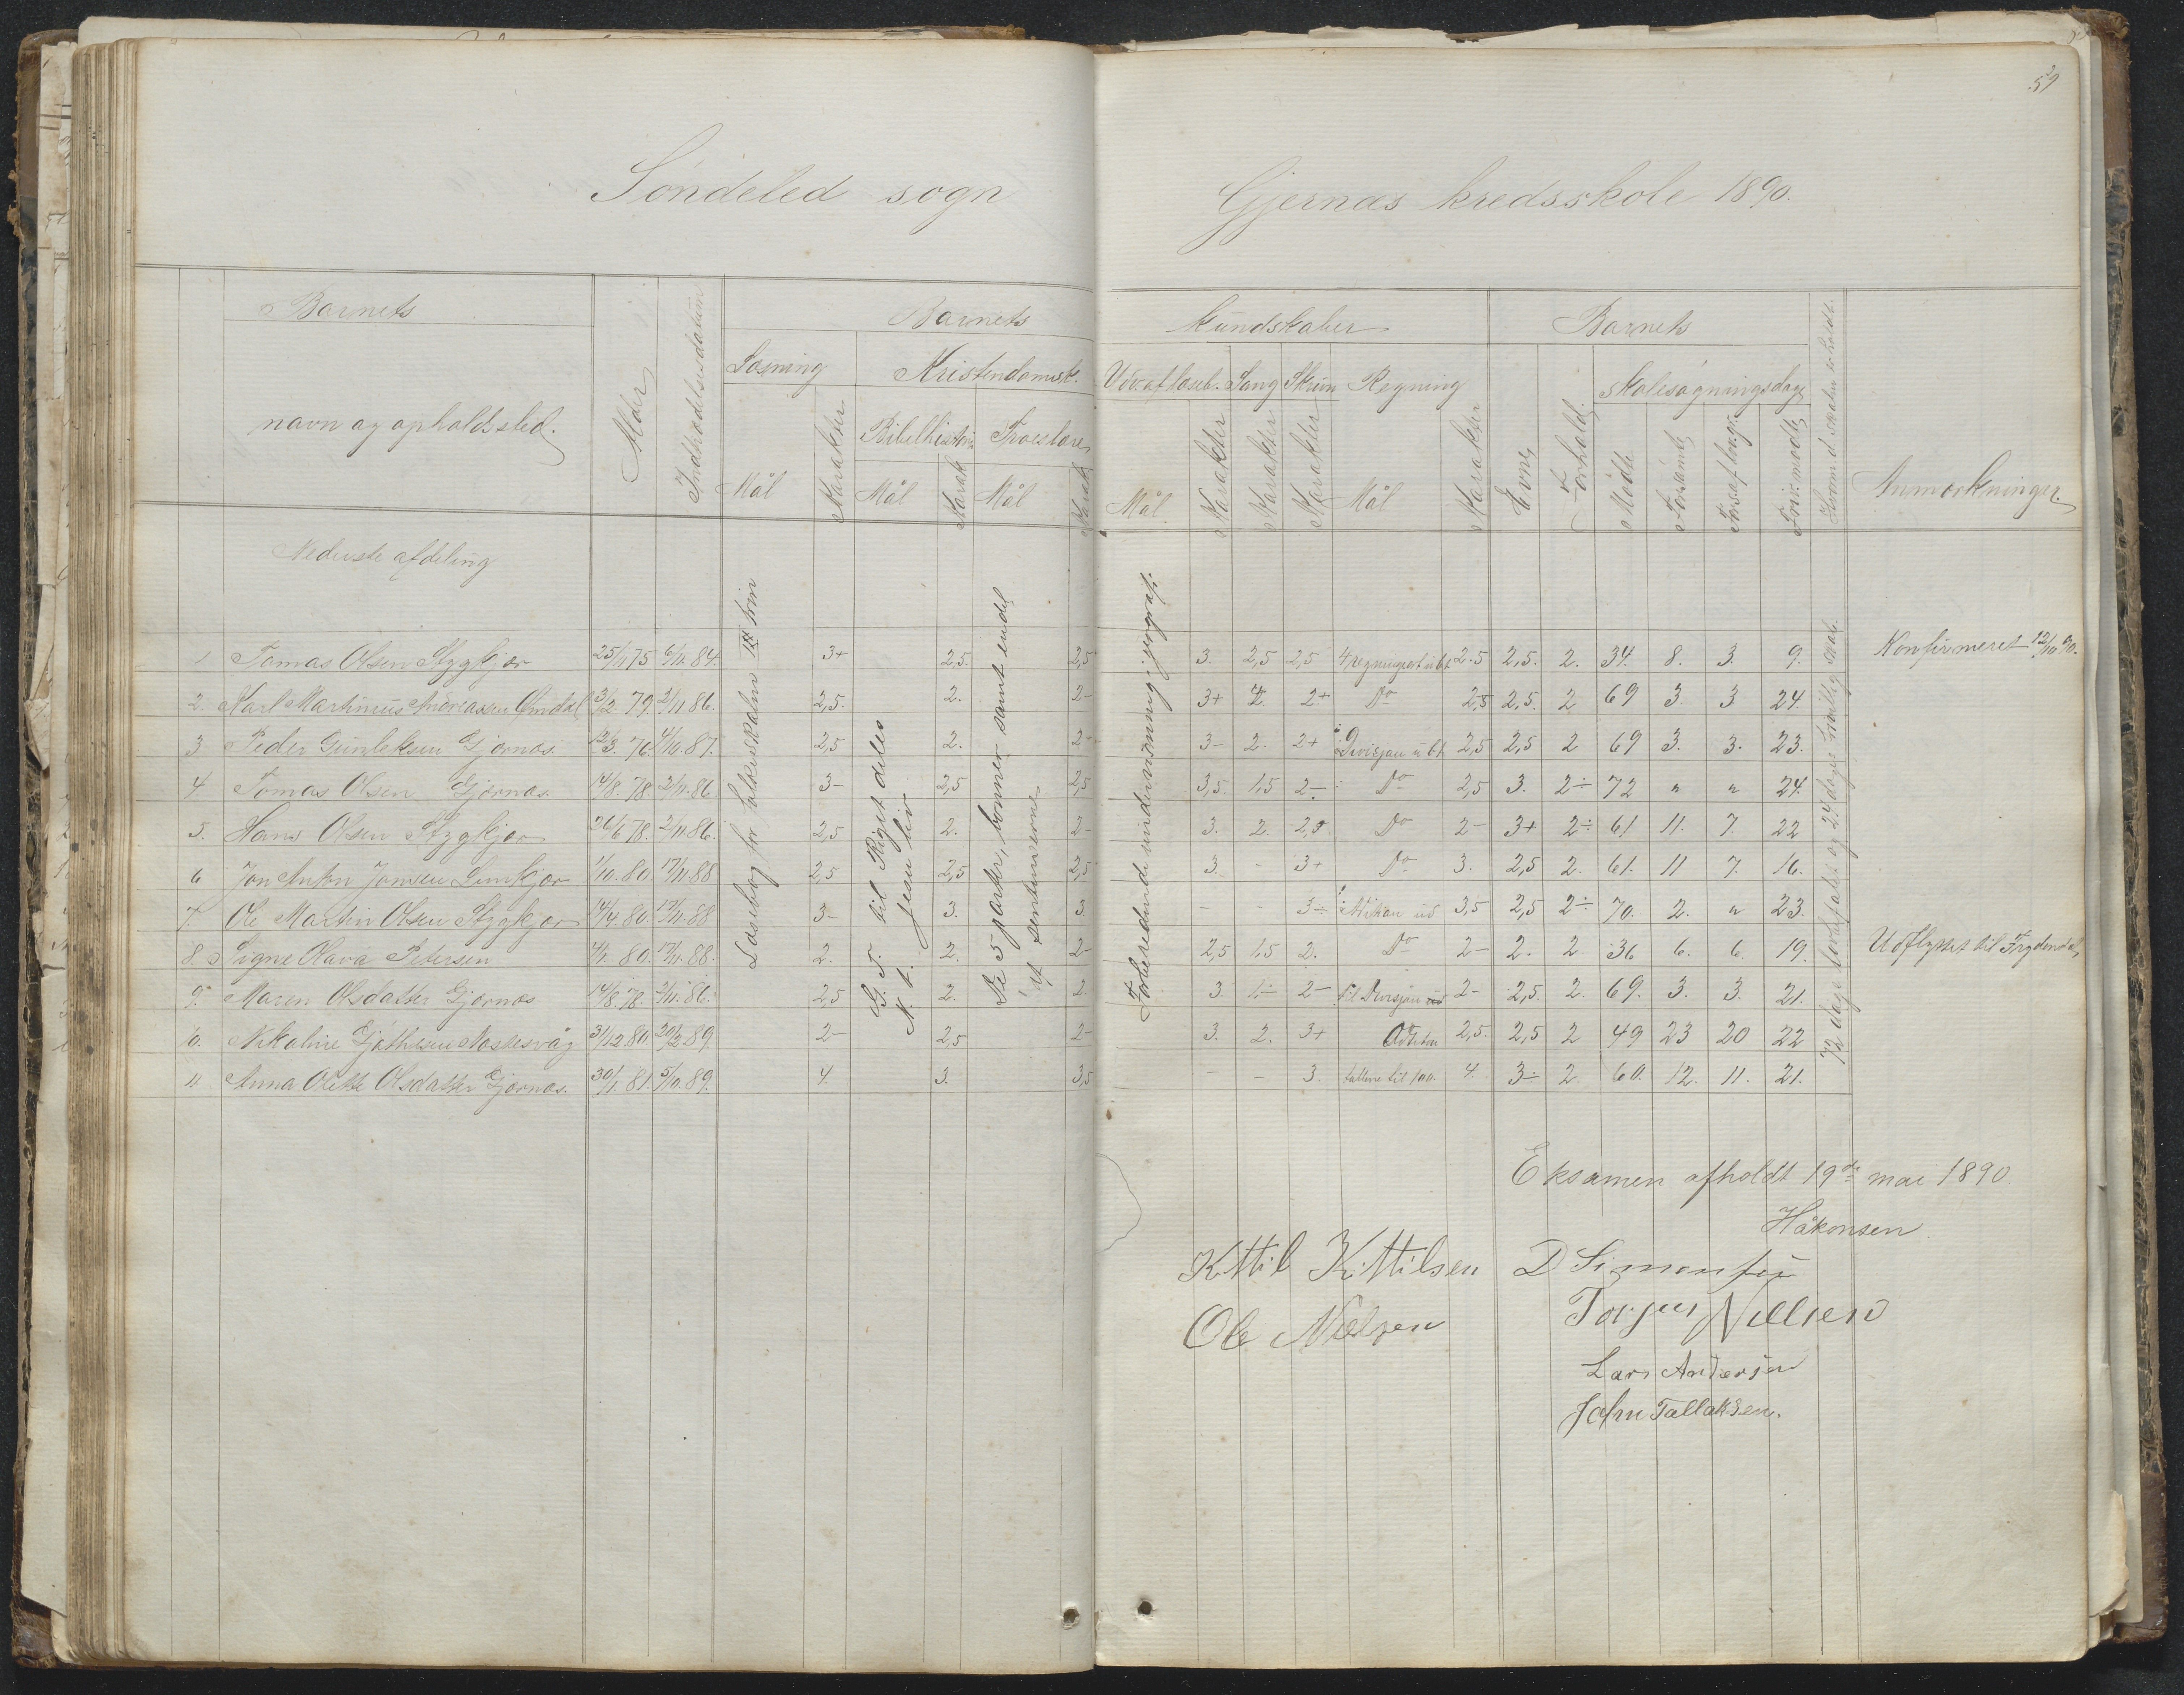 59
Söndeled sogn
Gjernæs kredsskole 1890.
Barnets
navn og opholdssted.
Alder
Indtrædelsesdatum
Barnets
Læsning
Kristendomsk.
Bibelhistorie
Troeslære
Mål
Karakter
Mål
Karak
Mål
Karak
Kundskaber
Barnets
Udv. af læseb. Sang Skriv. Regning
Mål
Karakter
Karakter
Karakter
Mål
Karakter
Evne
Forhold.
Skolesøgningsdage
Mødte
Forsømte
Fors. af lov. gr.
Friv. mødte
Hvorm. d. skolen er holdt.
Anmærkninger.
Nederste afdeling
Læsebog for folkeskolen 1ste trin
G. T. til Riget deles
N. t. Jesu liv
De 5 parter, bønner samt endel af sentenserne
Forberedende undervisning i geografi.
72 dage lovbefalet og 24 dage frivillig skole.
1 Tomas Olsen Stygkjær 25/1 75 6/11 84. 3+ 2,5. 2,5 3. 2,5 2,5 4 regningsart ubt 2.5 2,5. 2. 34. 8. 3. 9. Konfirmeret 12/10 90.
2. Karl Martinius Andreassen Omdal 3/2 79. 2/11 86. 2,5. 2. 2- 3+ 2. 2+ Do 2,5 2,5. 2 69 3 3 24.
3 Peder Gunleksen Gjernæs. 12/3. 76. 4/10. 87. 2,5 2. 2- 3- 2. 2+ i Divisjon ubt 2,5 2,5 2 69 3. 3. 23.
4 Tomas Olsen Gjernæs. 14/8. 78. 2/11. 86. 3- 2,5 2,5 3,5. 1,5 2- Do 2,5 3. 2÷ 72 " " 24.
5. Hans Olsen Stygkjær 26/6 78. 2/11. 86. 2,5 2. 2- 3. 2. 2,5 Do 2- 3+ 2÷ 61 11. 7. 22
6 Jon Anton Jonsen Lunkjær 1/10. 80. 17/11. 88 2,5 2,5 2,5 3. - 3+ Do 3. 2,5 2. 61. 11 7. 16.
7. Ole Martin Olsen Stygkjær 14/4 80. 17/11. 88 3- 3. 3. - - 3÷ 3,5 2,5 2÷ 70. 2. " 23.
8. Signe Olava Petersen 4/1. 80. 17/11. 88. 2. 2. 2- 2,5 1,5 2. Do 2- 2. 2. 36 6. 6. 19. Udflyttet til Frydendal,
9. Maren Olsdatter Gjernæs 14/8. 78. 2/11. 86. 2,5 2. 2. 3. 1÷ 2- til Divisjon 2- 2,5. 2. 69. 3. 3. 21.
10. Nikoline Gjøthesen Næskesvåg 31/12. 80. 20/2 89. 2- 2,5 2- 3. 2. 3+ 2,5. 2,5 2 49 23 20 22
11. Anna Olette Olsdatter Gjernæs. 30/1. 81. 5/10. 89. 4. 3. 3,5 - - 3. tallene til 100. 4. 3÷ 2. 60. 12. 11. 21.
Eksamen afholdt 19de mai 1890.
Håkonsen
Kittil Kittilsen D Simonsen
Ole Nielsen Torjus Nilsen
Lars Andersen
John Tallaksen.